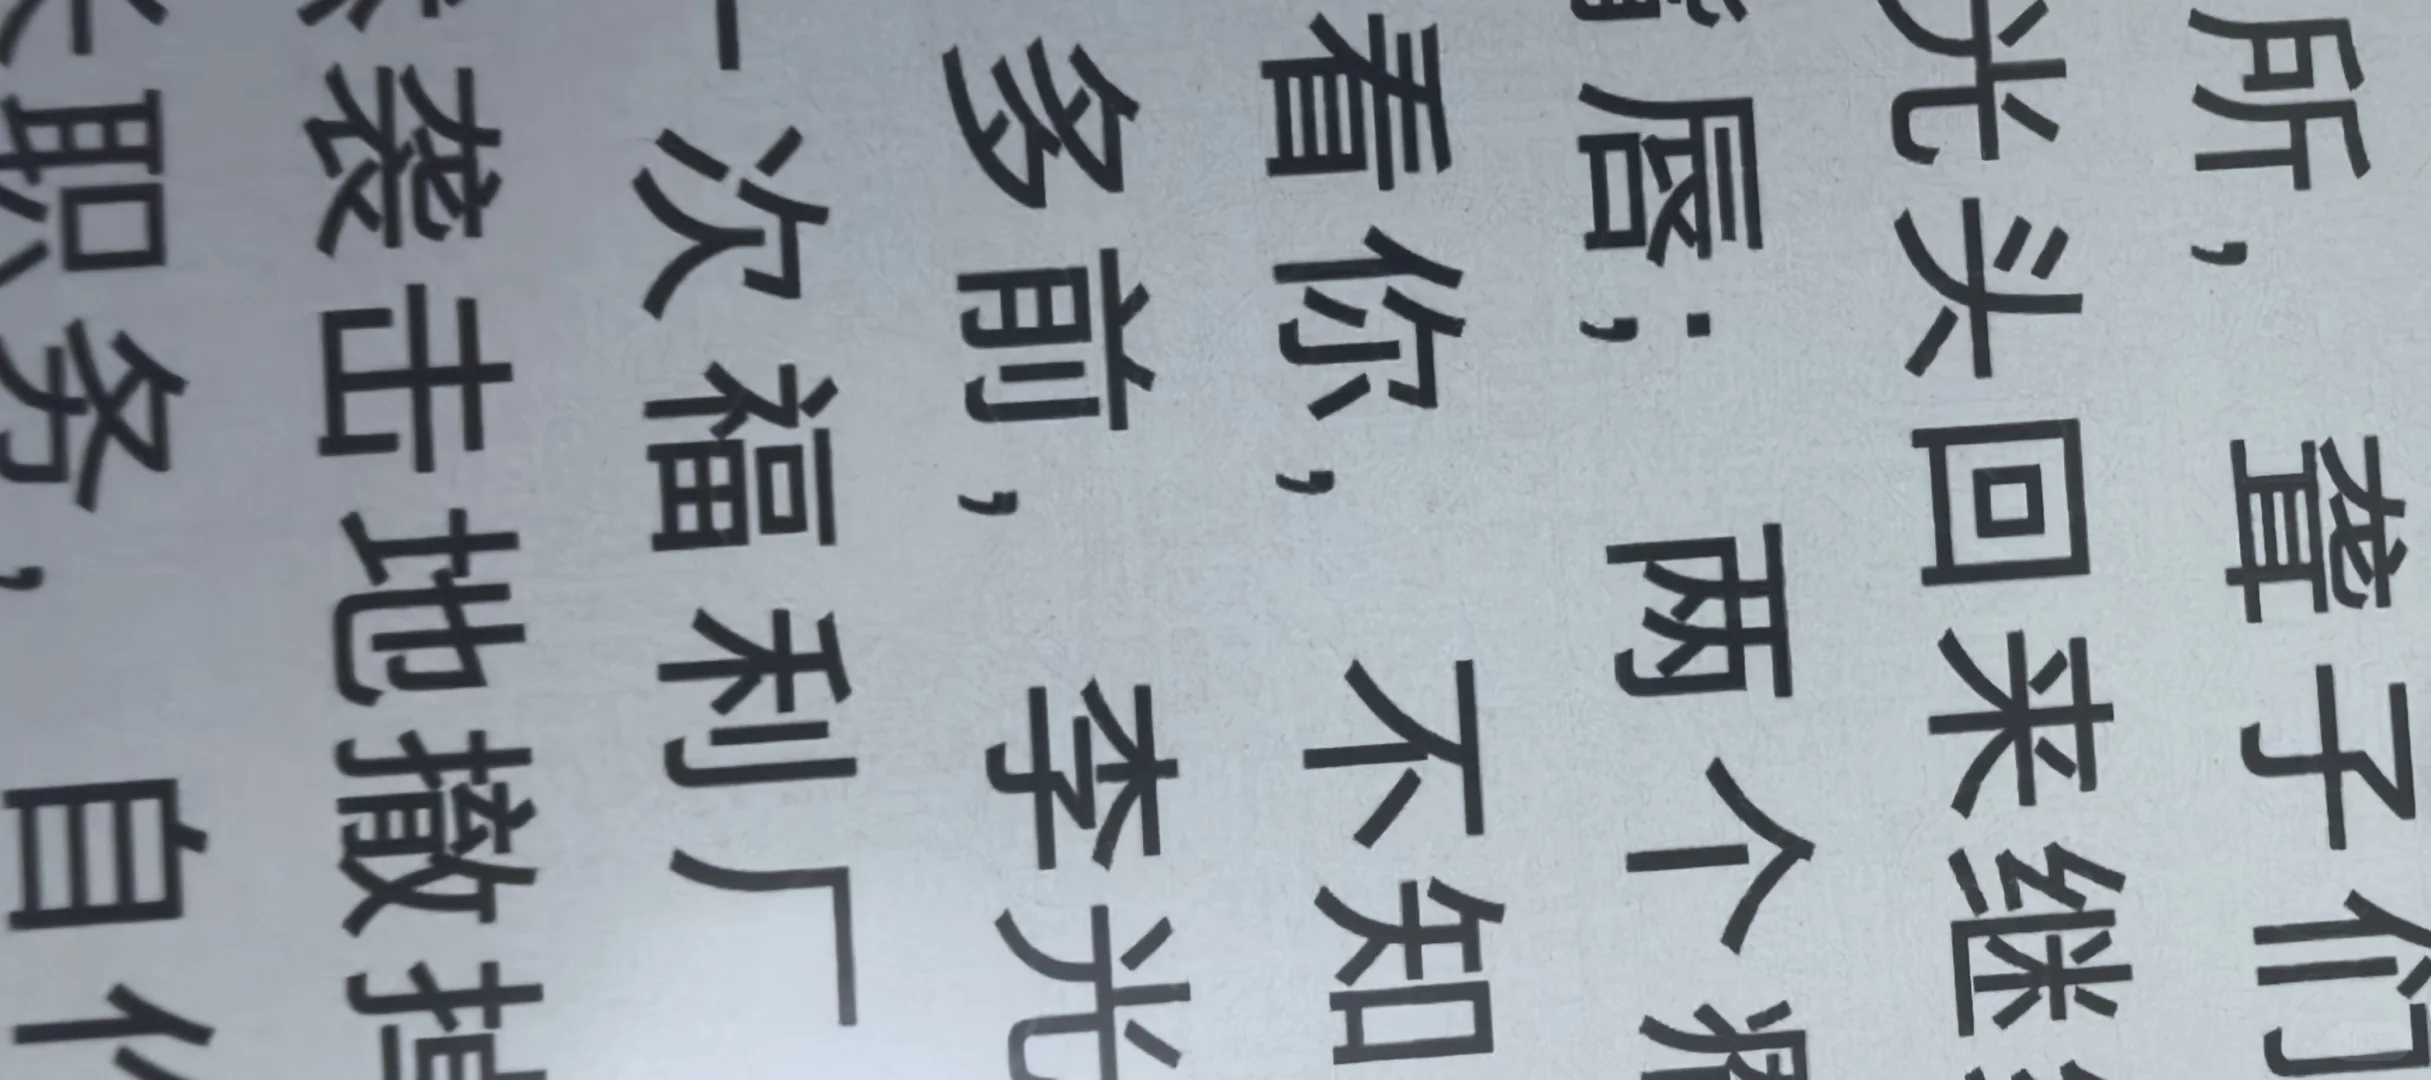 所,聋子们
光头回来继
唇;两个
看你,不知
多前,李光
一次福利厂
袭击地撤掉
职务,自